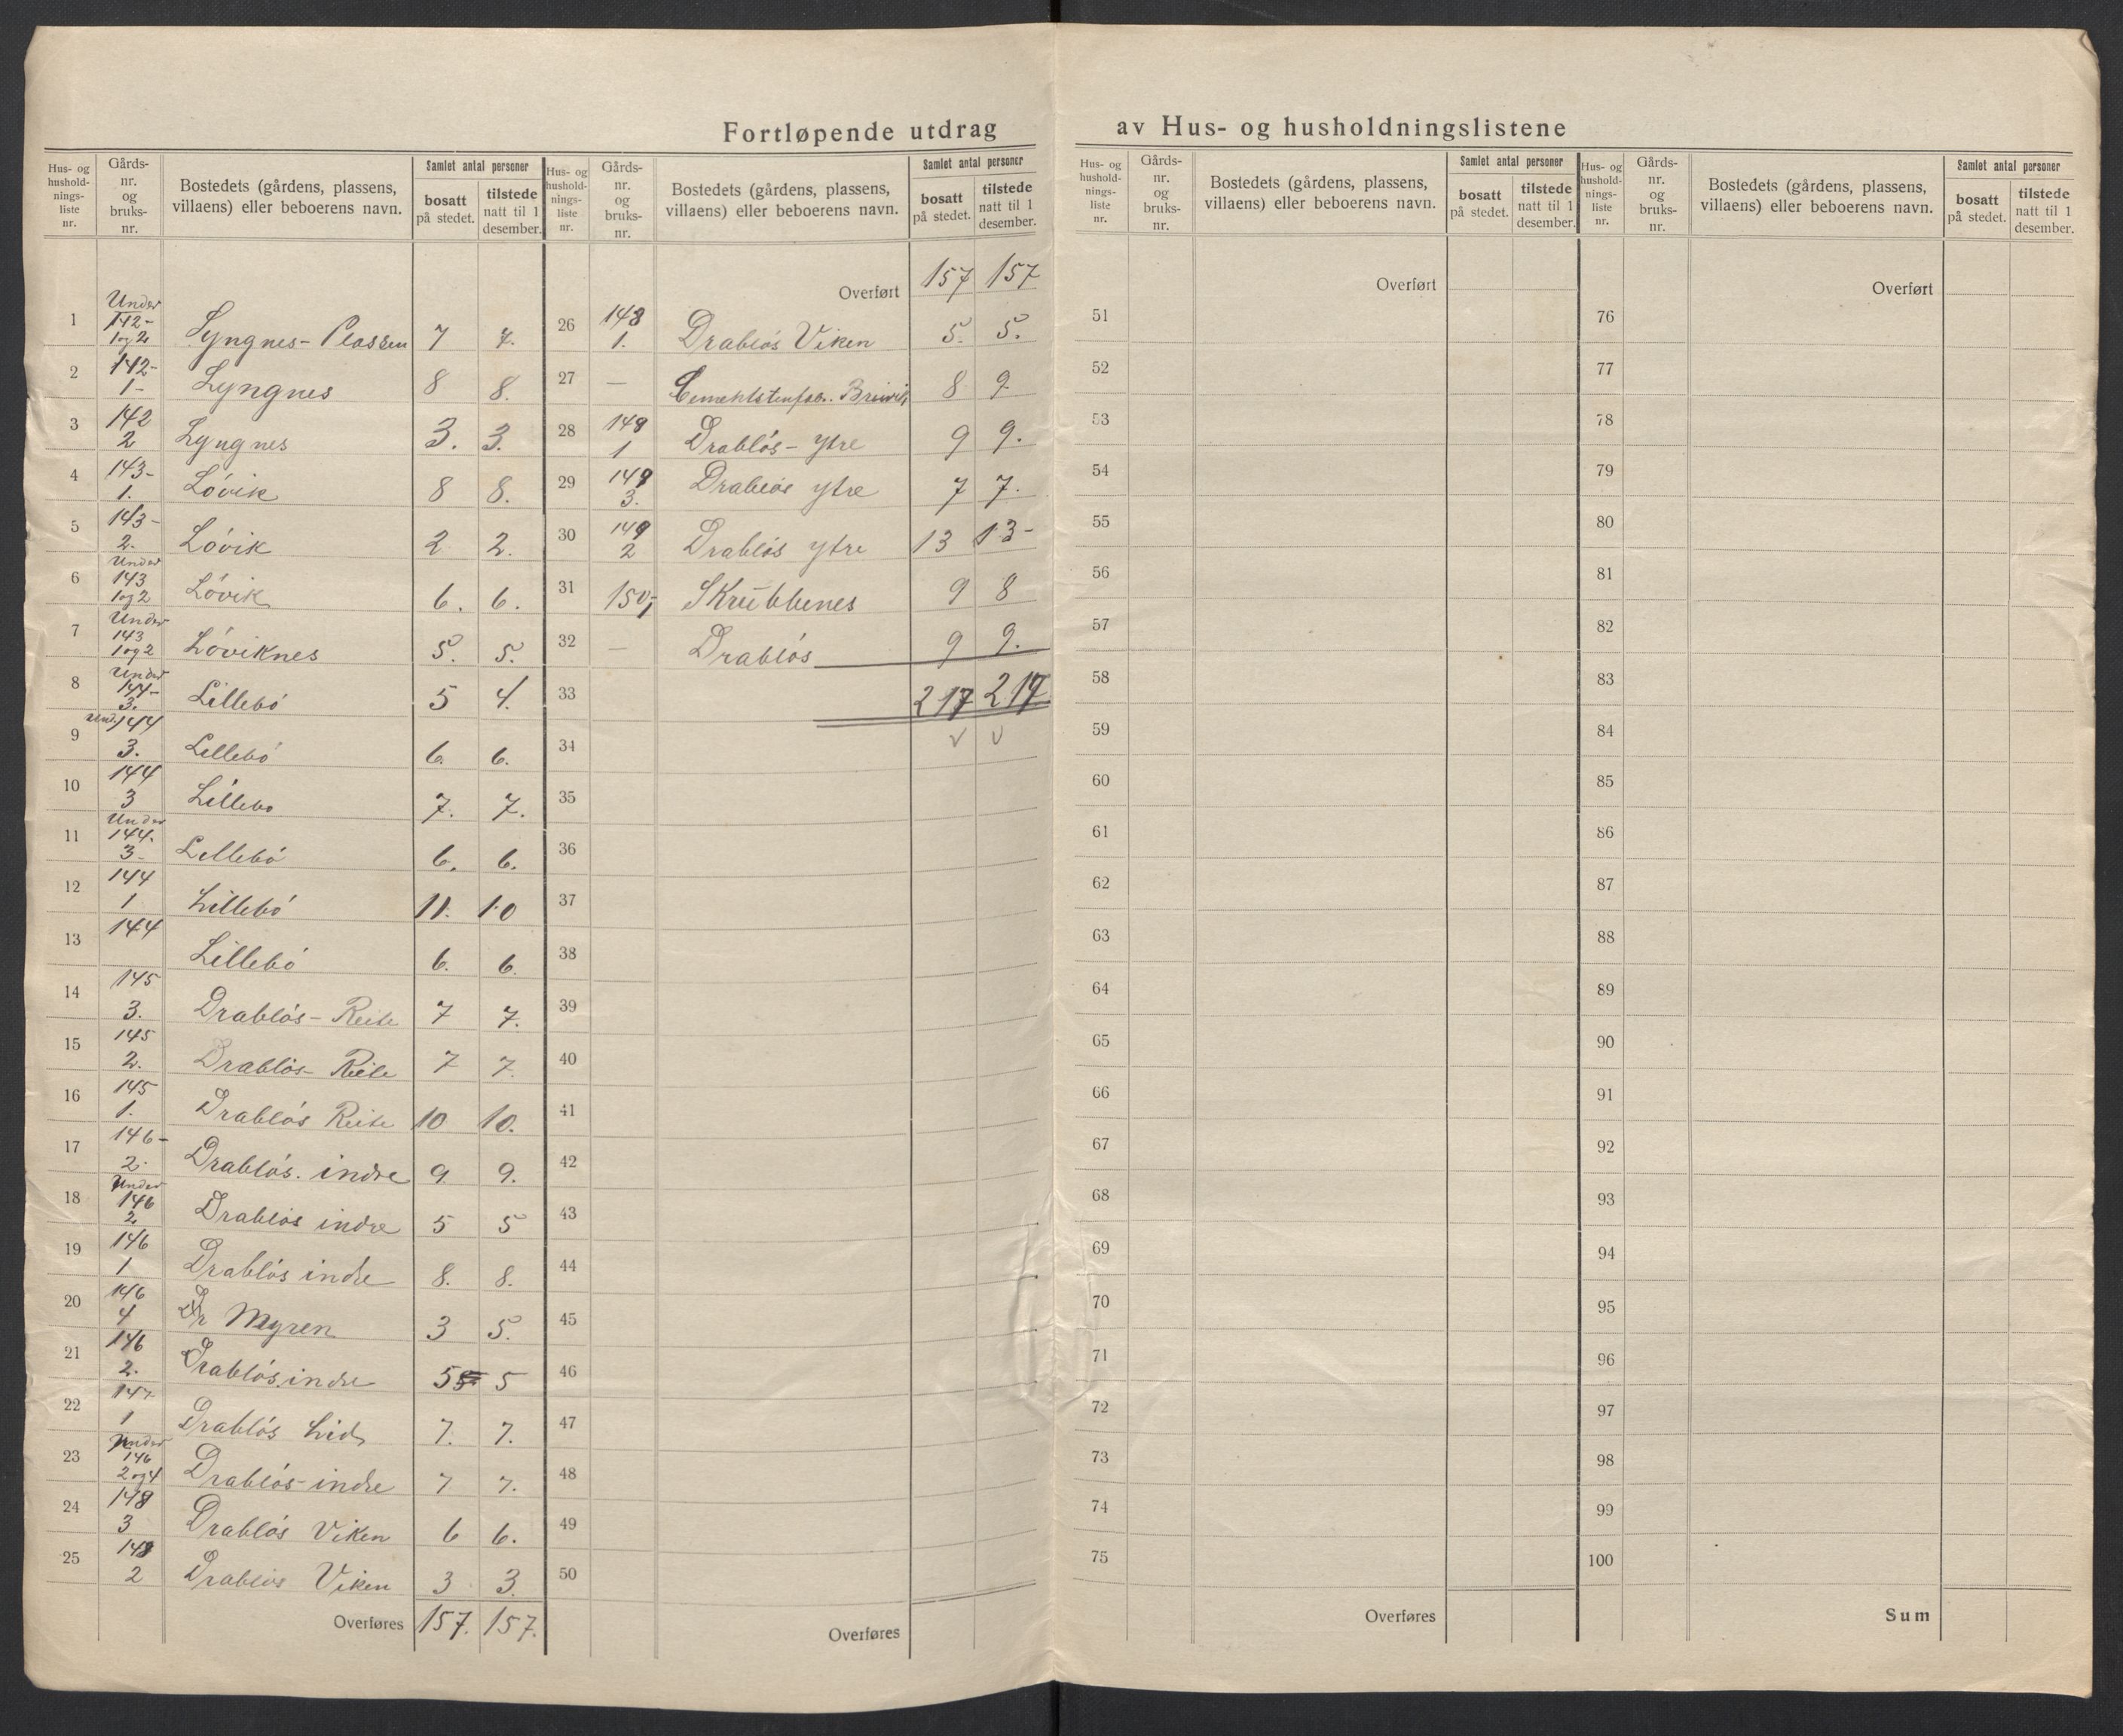 Fortløpende utdrag av Hus- og husholdningslistene
Hus- og hushold-nings-liste nr. | Gårds-nr. og bruks-nr. | Bostedets (gårdens, plassens, villaens) eller beboerens navn. | Samlet antal personer | bosatt på stedet. | tilstede natt til 1 desember.
1 | Under 142- 1og2 | Lyngnes-Plassen | 7 | 7.
2 | 142- 1- | Lyngnes | 8 | 8.
3 | 142 2 | Lyngnes | 3. | 3.
4 | 143- 1. | Lövik | 8 | 8.
5 | 143- 2. | Lövik | 2 | 2.
6 | Under 143 1og2 | Lövik | 6. | 6.
7 | Under 143 1og2 | Löviknes | 5. | 5.
8 | Under 144- 3. | Lillebö | 5 | 4.
9 | Und. 144 3. | Lillebö | 6. | 6.
10 | 144 3 | Lillebo | 7. | 7.
11 | Under 144. 3- | Lillebö | 6. | 6.
12 | 144 1 | Lillebö | 11. | 10
13 | 144 | Lillebö | 6. | 6.
14 | 145 3. | Drablös-Reite | 7 | 7.
15 | 145 2. | Drablös-Reite | 7 | 7.
16 | 145 1. | Drablös Reite | 10 | 10.
17 | 146- 2. | Drablös. indre | 9 | 9.
18 | Under 146 2 | Drablös indre | 5 | 5
19 | 146 1 | Drablös indre | 8. | 8.
20 | 146 4 | Dr Myren | 3 | 5.
21 | 146 2. | Drablös. indre | 5 | 5
22 | 147 1 | Drablös Lid | 7. | 7.
23 | Under 146 2og4 | Drablös-indre | 7 | 7.
24 | 148 3 | Drablös Viken | 6 | 6.
25 | 148 2 | Drablös Viken | 3 | 3.
Overføres | 157. | 157.
Hus- og hushold-nings-liste nr. | Gårds-nr. og bruks-nr. | Bostedets (gårdens, plassens, villaens) eller beboerens navn. | Samlet antal personer | bosatt på stedet. | tilstede natt til 1 desember.
Overført | 157 | 157
26 | 148 1. | Drablös Viken | 5. | 5.
27 | — | 8 | 9
28 | 149 1 | Drablös-ytre | 9 | 9.
29 | 149 3. | Drablös ytre | 7 | 7.
30 | 149 2 | Drablös ytre | 13 | 13-
31 | 150,1 | Skrubbenes | 9 | 8
32 | — | Drablös | 9 | 9.
33 | 217 | 217
34
35
36
37
38
39
40
41
42
43
44
45
46
47
48
49
50
Overføres
Hus- og hushold-nings-liste nr. | Gårds-nr. og bruks-nr. | Bostedets (gårdens, plassens, villaens) eller beboerens navn. | Samlet antal personer | bosatt på stedet. | tilstede natt til 1 desember.
Overført
51
52
53
54
55
56
57
58
59
60
61
62
63
64
65
66
67
68
69
70
71
72
73
74
75
Overføres
Hus- og hushold-nings-liste nr. | Gårds-nr. og bruks-nr. | Bostedets (gårdens, plassens, villaens) eller beboerens navn. | Samlet antal personer | bosatt på stedet. | tilstede natt til 1 desember.
Overført
76
77
78
79
80
81
82
83
84
85
86
87
88
89
90
91
92
93
94
95
96
97
98
99
100
Sum